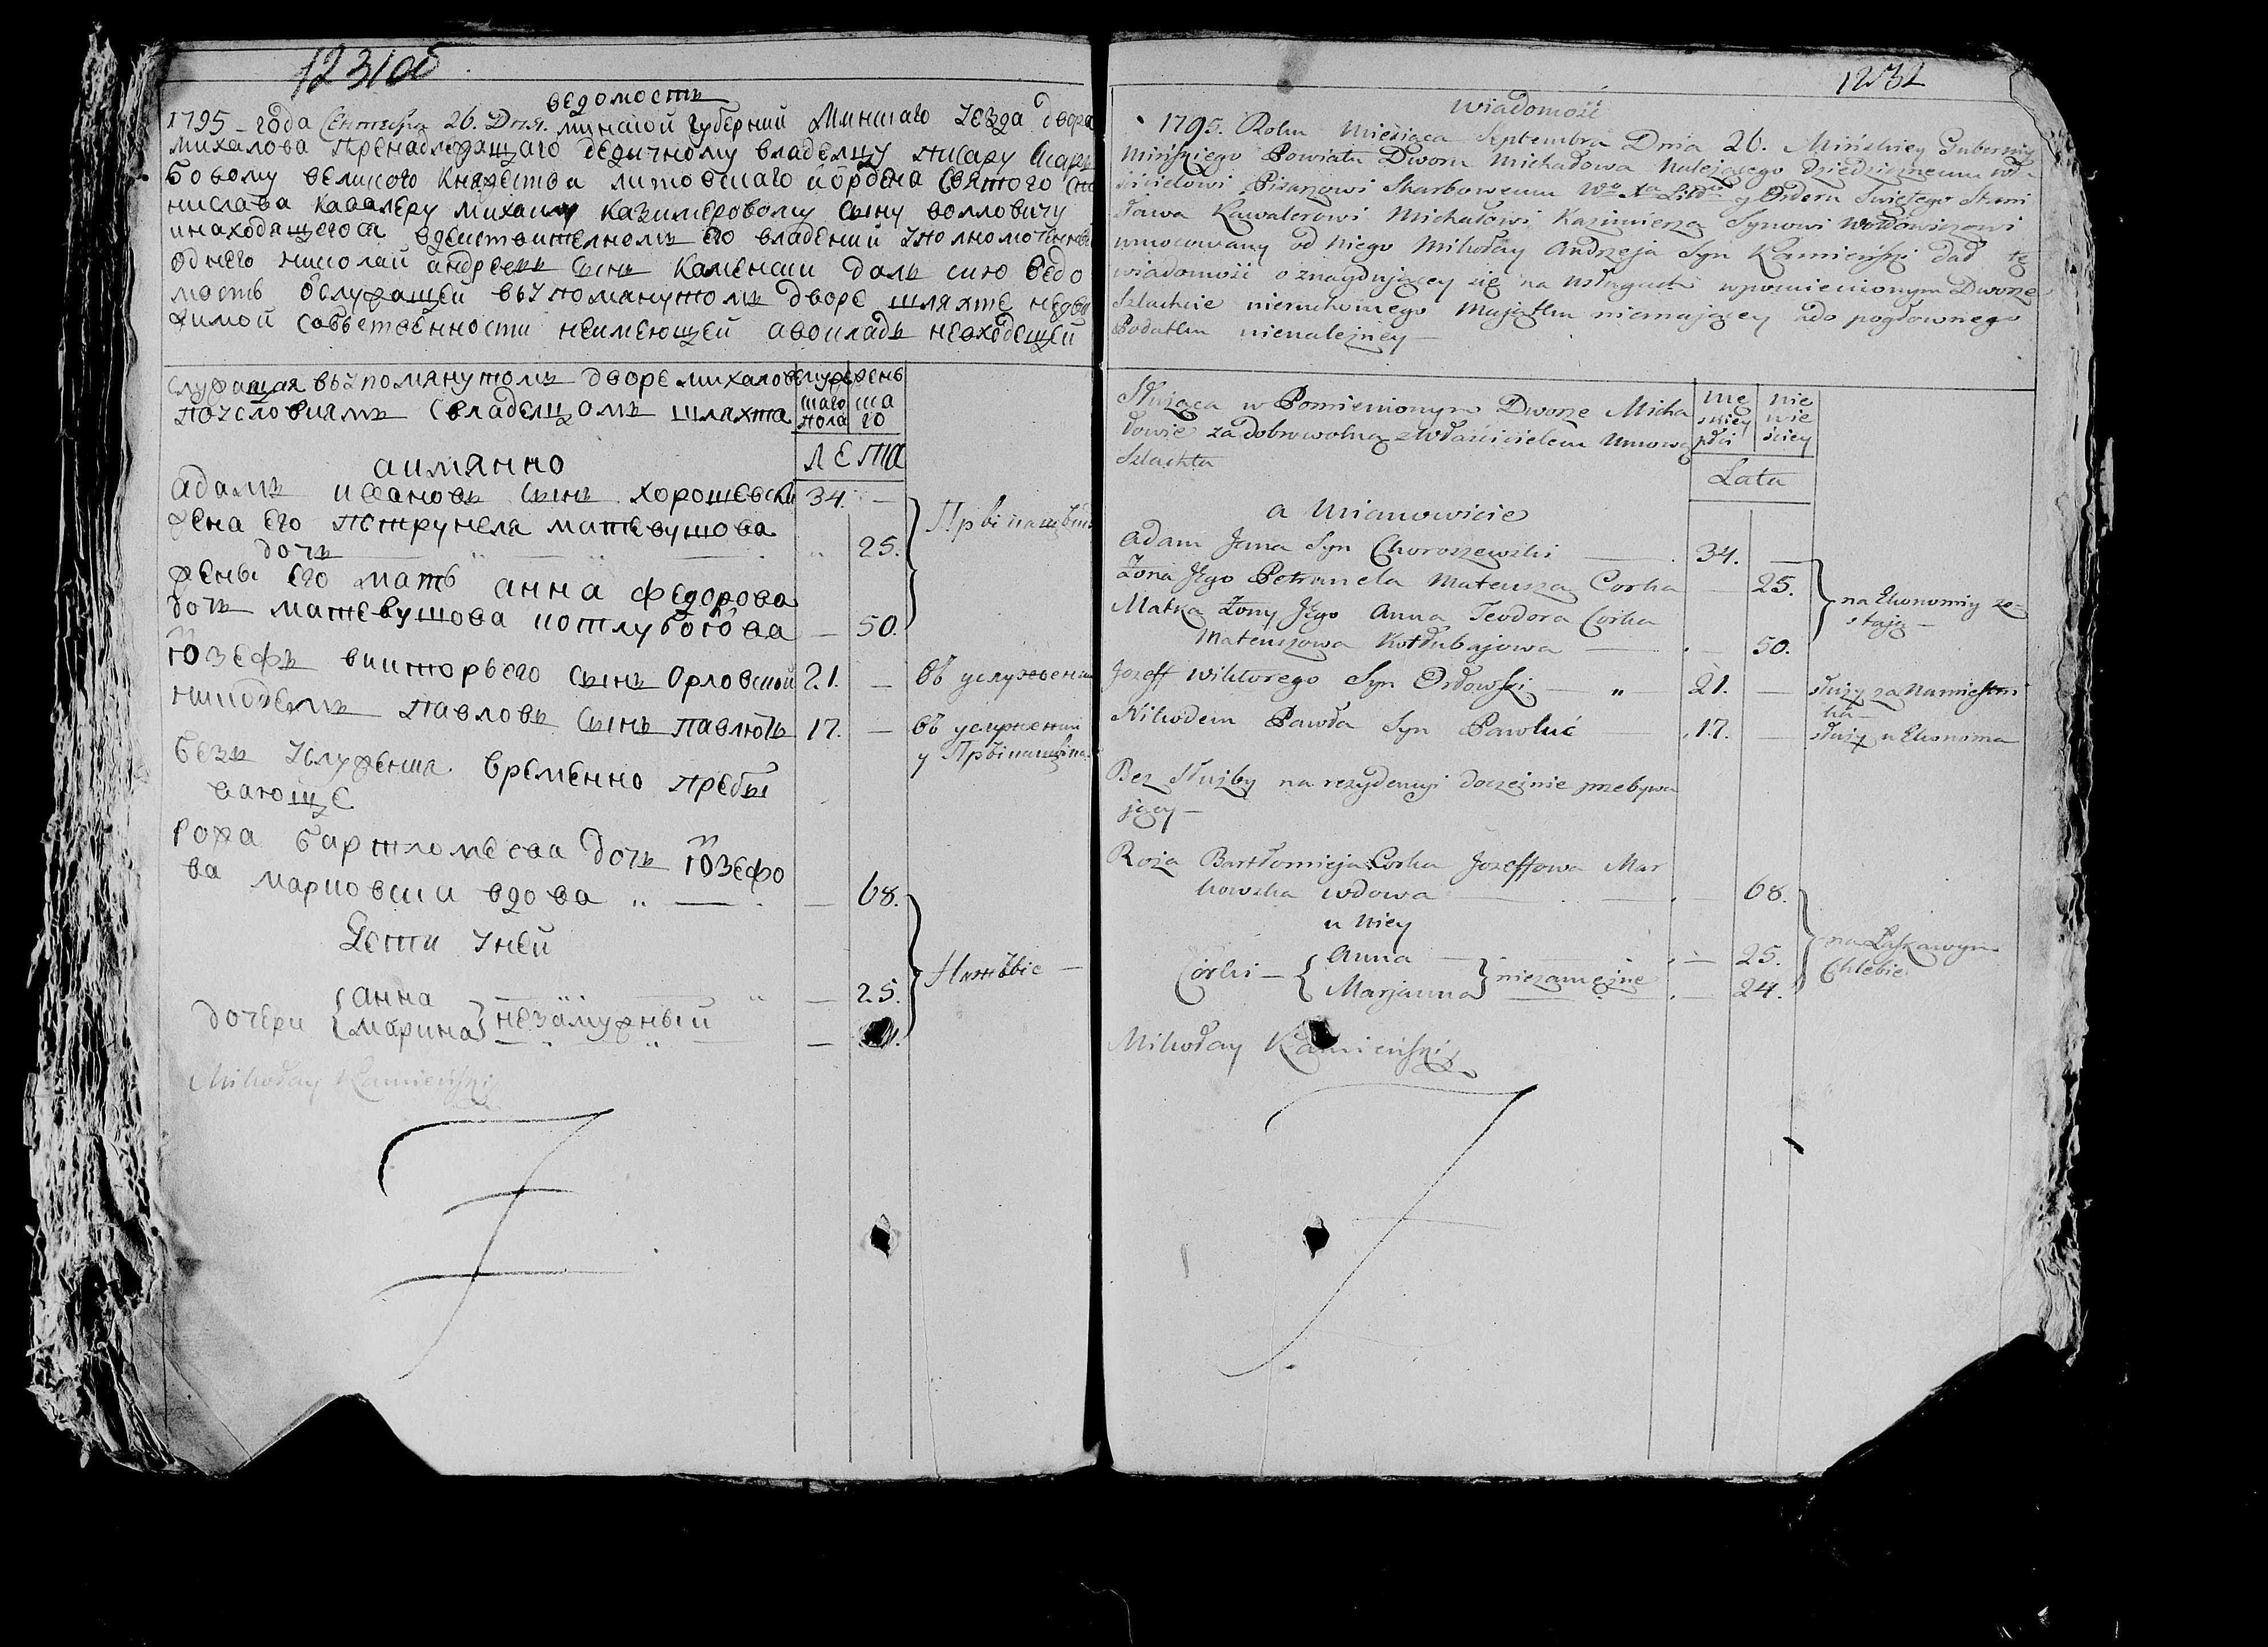 1231 об
ведомость
1795 - года Сентября 26. Дня. минской губернии Минскаго Уезда двора
михалова пренадлежащаго дедичному владелцу писару скар
бовому великого Княжества литовскаго и ордена святого Ста
нислава Кавалеру михаилу Казимеровому сыну волловичу
инаходящегося вдействителномъ его владении
однего николай андреевъ сынъ Каменски далъ сию ведо
мость ослужащей ввупомянутомъ дворе шляхте недви
жимой собственности неимеющей авокладъ невходещей
служащая ввупомянутомъ дворе михалове
поусловиямъ свладелцомъ шляхта
мужескаго пола
женьскаго
лета
аимянно
адамъ ивановъ сынъ хорошевски 34. —
жена его петрунела матевушова
дочь 25.
жены его мать анна федорова
дочь матевушова котлубогова — 50.
юзефъ викторьего сынъ Орловской 21. — въ услужении
никодемъ павловъ сынъ павлють 17. — въ услужении
у
безъ услужения временно пребы
вающе
рожа бартломеева дочь юзефо
ва марковска вдова „ — — 68.
Дети уней
анна — 25.
дочери марина незамужный —
Mikołay Kamieński
1232
Wiadomość
1795. Roku Miesiąca Septembra Dnia 26. Mińskiey Gubernij
Mińskiego Powiatu Dworu Michałowa Należącego Dziedzicznemu wła
scicielowi Pisarzowi Skarbowemu Wo Xa Litto y Orderu Swiętego Stani
sława Kawalerowi Michałowi Kazimierza Synowi Wołłowiczowi
umocowany od Niego Mikołay Andrzeja Syn Kamieński dał tę
wiadomość o znaydującey się na usługach wpomienionym Dworze
Szlachcie nieruchomego Majątku niemającey ado pogłownego
Podatku nienależney —
Służąca w Pomienionym Dworze Micha
łowie za dobrowolną zwłaścicielem Umową
Szlachta
męskiey płci
niewieściey
Lata
a Mianowicie
Adam Jana Syn Choroszewski — 34. —
Żona Jego Petrunela Mateusza Corka — 25.
na Ekonomiy zo=
stają —
Matka Żony Jego Anna Teodora Corka
Mateuszowa Kotłubajowa — 50.
Jozeff Wiktorego Syn Orłowski — „ 21. — służy za Namiestni
ka —
Nikodem Pawła Syn Pawluć — 17. — służy u Ekonoma
Bez Służby na rezydencyi doczeżnie przebywa
jący —
Roża Bartłomieja Corka Jozeffowa Mar
kowska wdowa — 68.
u Niey
Anna — 25.
Corki — niezamężne
Marjanna — 24.
na Łaskawym
Chlebie
Mikołay Kamieński